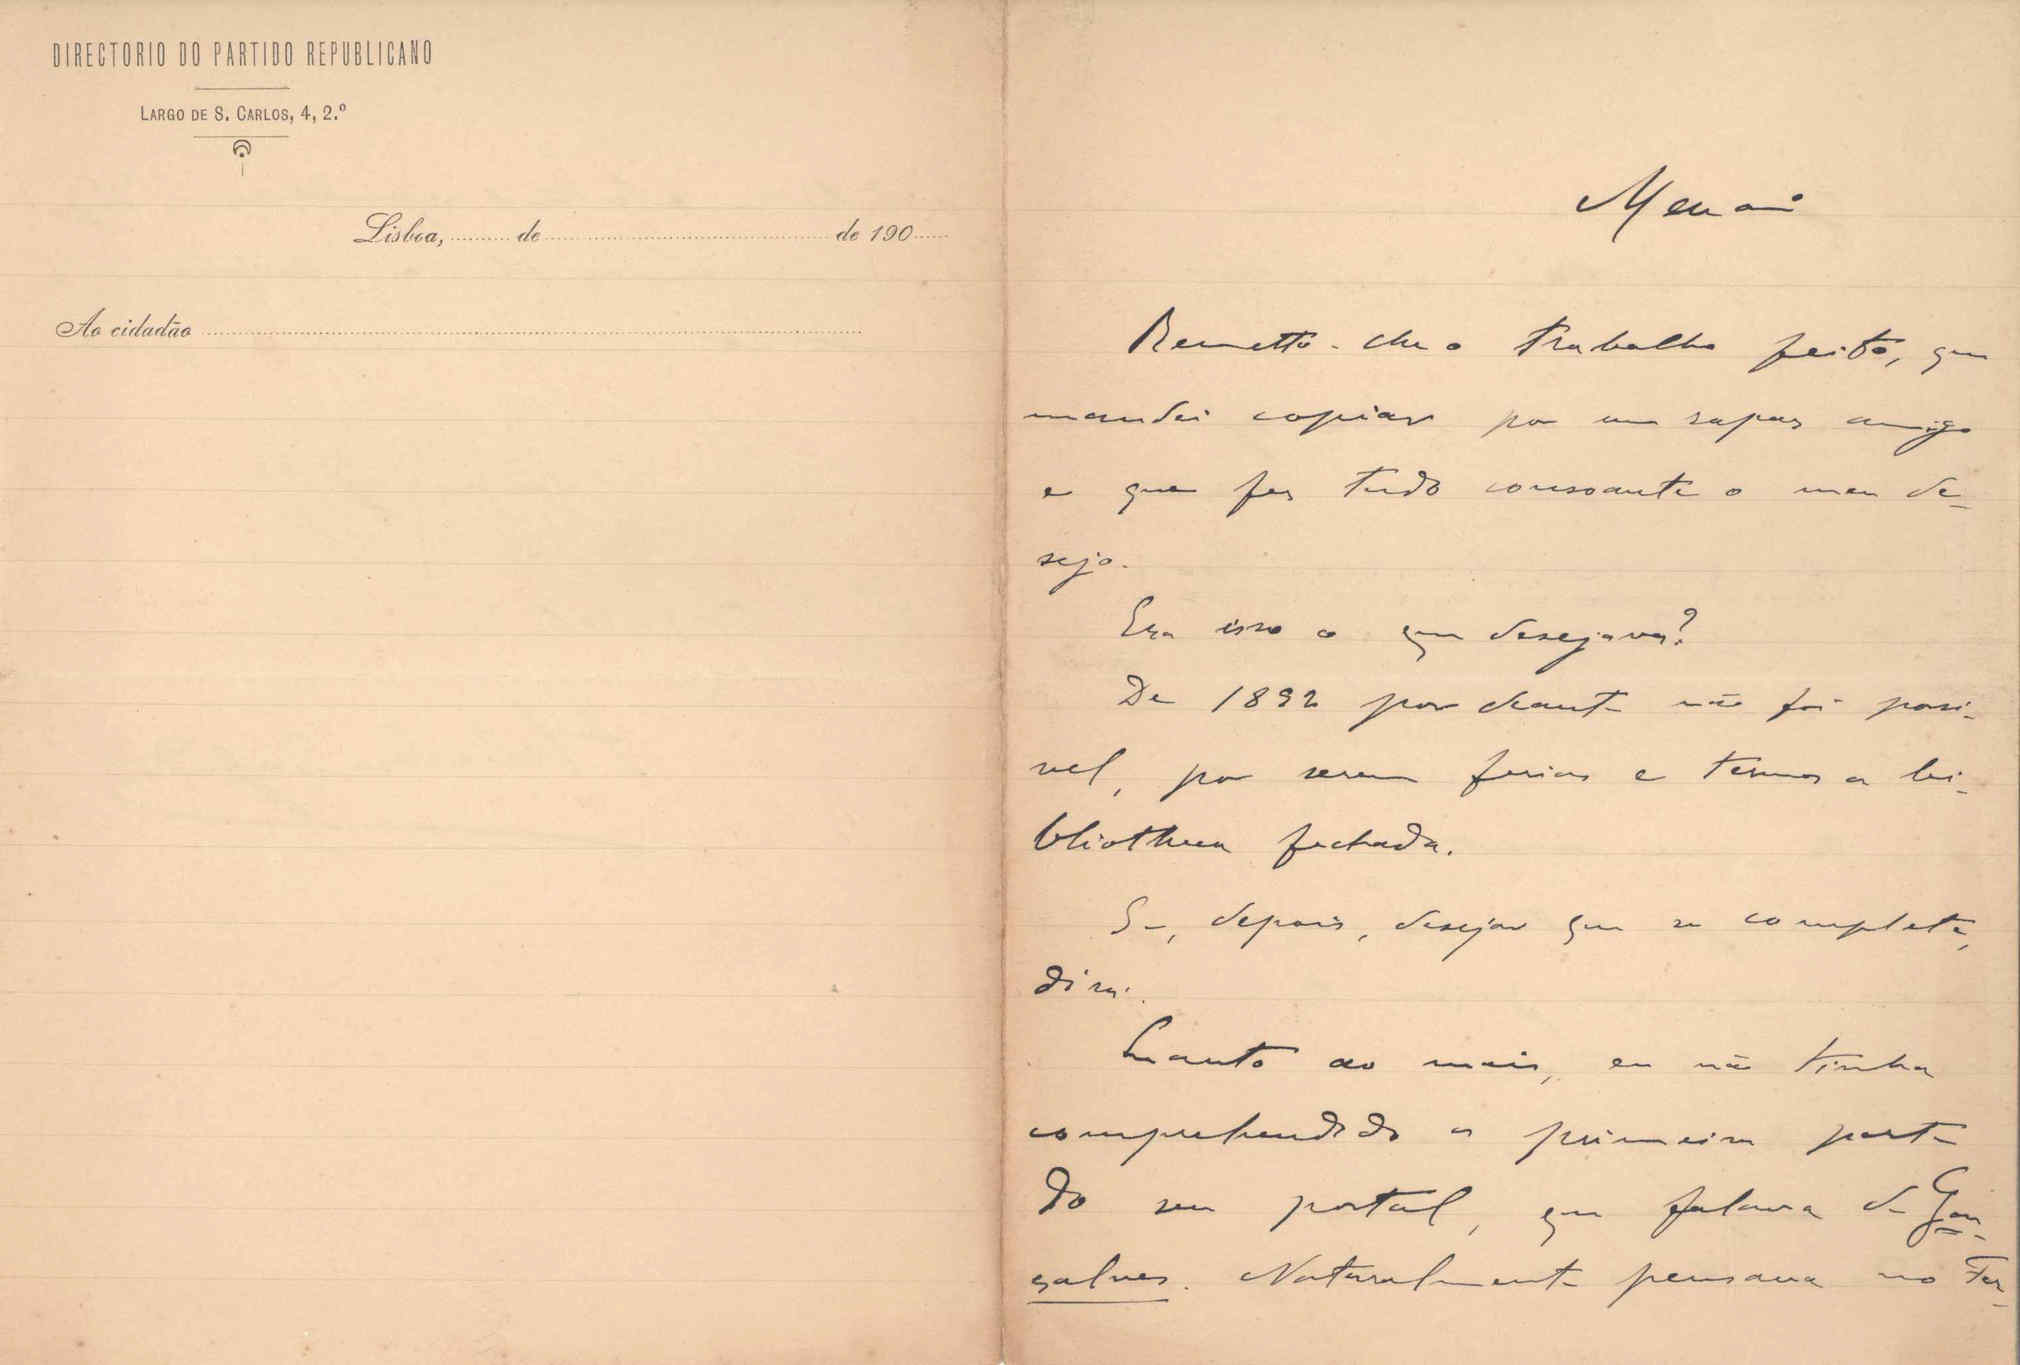 DIRECTORIO DO PARTIDO REPUBLICANO
LARGO DE S. CARLOS, 4, 2.º
Lisboa, .......... de .......................................... de 190......
Ao cidadão ..........................................
Remetto-lhe o trabalho feito, que
mandei copiar por um rapaz amigo
e que fez tudo consoante o meu de-
sejo.
Era isso o que desejava?
De 1892 por deante não foi possi-
vel, por serem ferias e termos a bi-
bliotheca fechada.
Se, depois, desejar que se complete,
dirá.
Quanto ao mais, eu não tinha
comprehendido a primeira parte
do seu postal, que falava de Gon-
çalves. Naturalmente pensava no Ter-